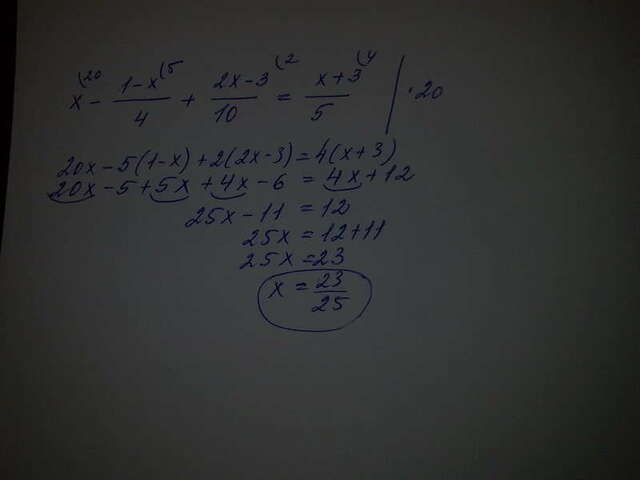 x⁽²⁰ - (1-x)⁽⁵/4 + (2x-3)⁽²/10 = (x+3)⁽⁴/5 | ·20
20x-5(1-x)+2(2x-3)=4(x+3)
20x-5+5x+4x-6=4x+12
25x-11=12
25x=12+11
25x=23
x=23/25